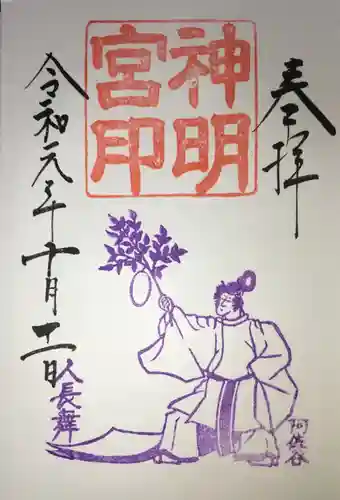 奉拝
神明
宮印
令和元年十月十二日
人長舞
阿佐谷